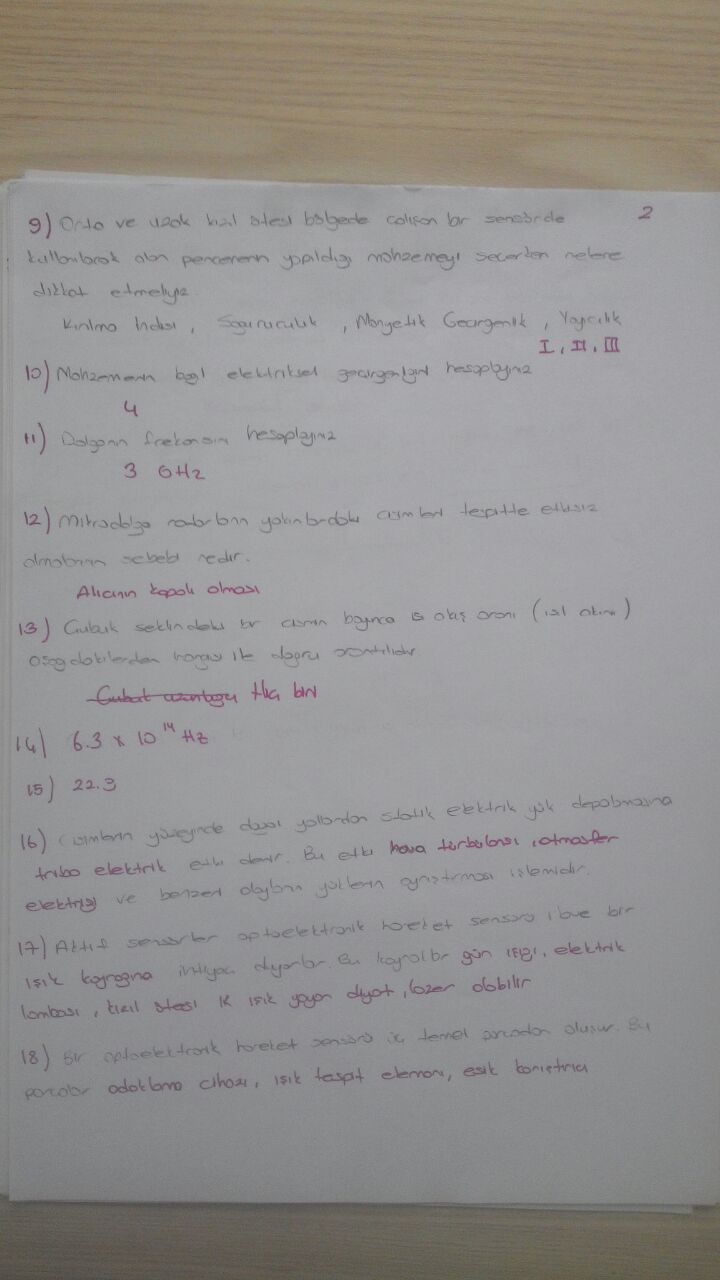 2
9) Orta ve uzak kızıl ötesi bölgede çalışan bir sensörde
kullanılacak olan pencerenin yapıldığı malzemeyi seçerken nelere
dikkat etmeliyiz.
Kırılma İndisi, Soğuruculuk, Manyetik Geçirgenlik, Yayıcılık
I, II, III
10) Malzemenin bağıl elektriksel geçirgenliğini hesaplayınız
4
11) Dalganın frekansını hesaplayınız
3 GHz
12) Mikrodalga radarların yakınlardaki cisimleri tespitte etkisiz
olmalarının sebebi nedir.
Alıcının kapalı olması
13) Çubuk şeklindeki bir cismin boyunca ısı akış oranı (ısıl akım)
aşağıdakilerden hangisi ile doğru orantılıdır
Çubuk uzunluğu Hiç biri
14) 6.3 x 10¹⁴ Hz
15) 22.3
16) Cisimlerin yüzeyinde doğal yollardan statik elektrik yük depolanmasına
tribo elektrik etki denir. Bu etki hava türbülansı, atmosfer
elektriği ve benzeri olayların yüklerin ayrıştırması işlemidir.
17) Aktif sensörler optoelektronik hareket sensörü ilave bir
ışık kaynağına ihtiyaç duyarlar. Bu kaynaklar gün ışığı, elektrik
lambası, kızıl ötesi IR ışık yayan diyot, lazer olabilir
18) Bir optoelektronik hareket sensörü üç temel parçadan oluşur. Bu
parçalar odaklama cihazı, ışık tespit elemanı, eşik karıştırıcı